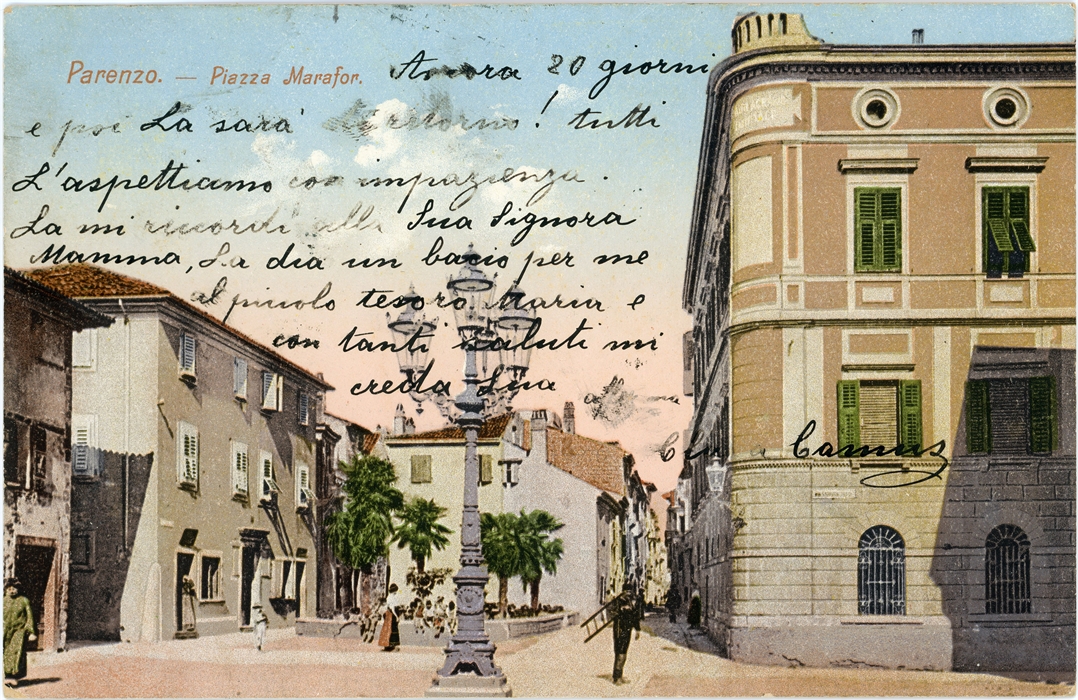 Parenzo. — Piazza Marafor.
Ancora 20 giorni
e poi La sarà di ritorno! tutti
L'aspettiamo con impazienza.
La mi ricordi alla Sua Signora
Mamma, La dia un bacio per me
al piccolo tesoro Maria e
con tanti saluti mi
creda Sua
Camus